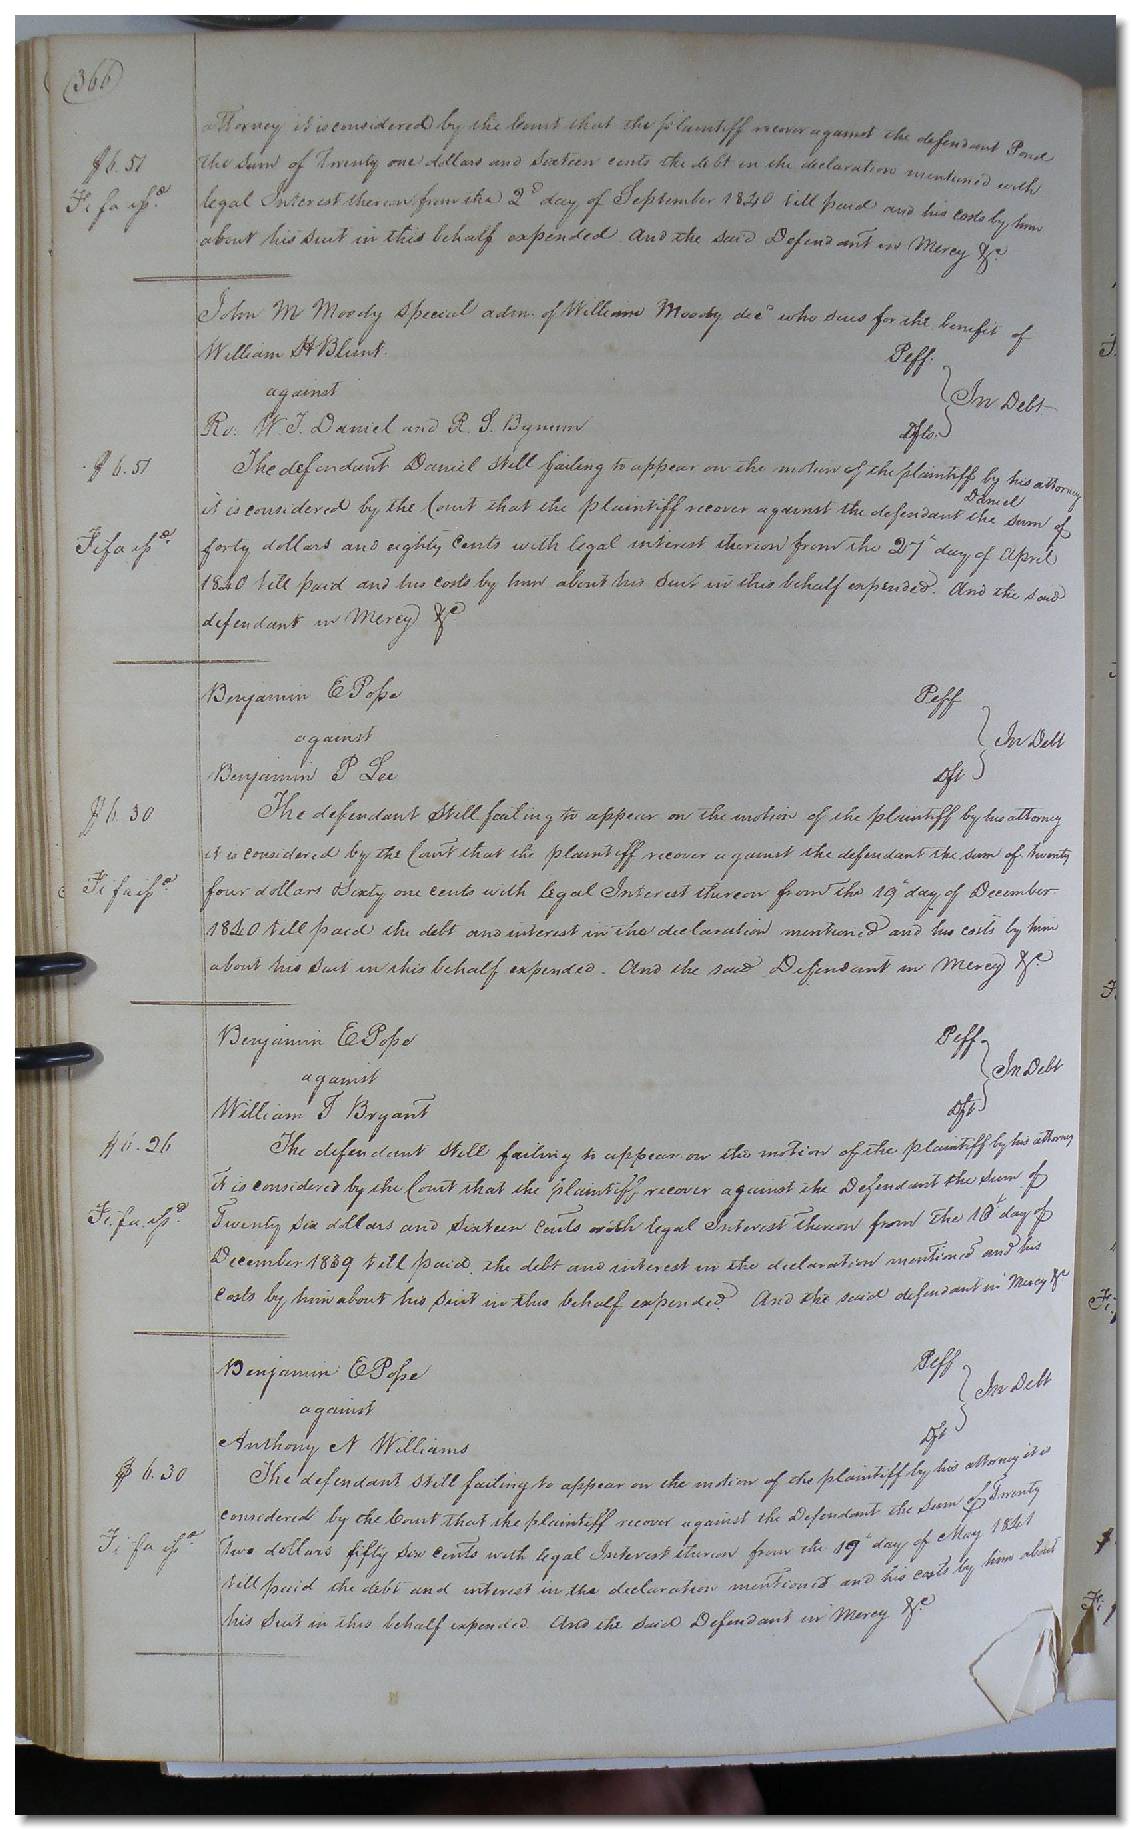 366
attorney it is considered by the Court that the plaintiff recover against the defendant Pond
$6.51
the sum of Twenty one dollars and sixteen cents the debt in the declaration mentioned with
Fi fa issd.
legal Interest thereon from the 2d day of September 1840 till paid and his costs by him
about his suit in this behalf expended. And the said Defendant in Mercy &c
John M Moody special adm. of William Moody decd who sues for the benefit of
William H Blunt. Peff.
against In Debt
Ro. W. T. Daniel and R. S. Bynum Dfts.
$6.51
The defendant Daniel still failing to appear on the motion of the plaintiff by his attorney
it is considered by the Court that the plaintiff recover against the defendant Daniel the sum of
Fi fa issd.
forty dollars and eighty cents with legal interest thereon from the 27th day of April
1840 till paid and his costs by him about his suit in this behalf expended. And the said
defendant in Mercy &c
Benjamin E Pope Peff
against In Debt
Benjamin P Lee Dft
$6.30
The defendant still failing to appear on the motion of the plaintiff by his attorney
it is considered by the Court that the plaintiff recover against the defendant the sum of twenty
Fi fa issd.
four dollars Sixty one cents with legal Interest thereon from the 19th day of December
1840 till paid the debt and interest in the declaration mentioned and his costs by him
about his suit in this behalf expended. And the said Defendant in Mercy &c
Benjamin E Pope Peff.
against In Debt
William T Bryant Dft
$6.26
The defendant still failing to appear on the motion of the plaintiff by his attorney
it is considered by the Court that the plaintiff recover against the Defendant the sum of
Fi. fa. issd.
Twenty six dollars and sixteen cents with legal Interest thereon from the day of
December 1839 till paid. the debt and interest in the declaration mentioned and his
costs by him about his suit in this behalf expended. And the said defendant in Mercy &c
Benjamin E Pope Peff
against In Debt
Anthony N Williams Dft
$6.30
The defendant still failing to appear on the motion of the plaintiff by his attorney it is
considered by the Court that the plaintiff recover against the Defendant the sum of Twenty
Fi fa issd.
Two dollars fifty six cents with legal Interest thereon from the 19th day of May 1841
till paid the debt and interest in the declaration mentioned and his costs by him about
his suit in this behalf expended. And the said Defendant in Mercy &c